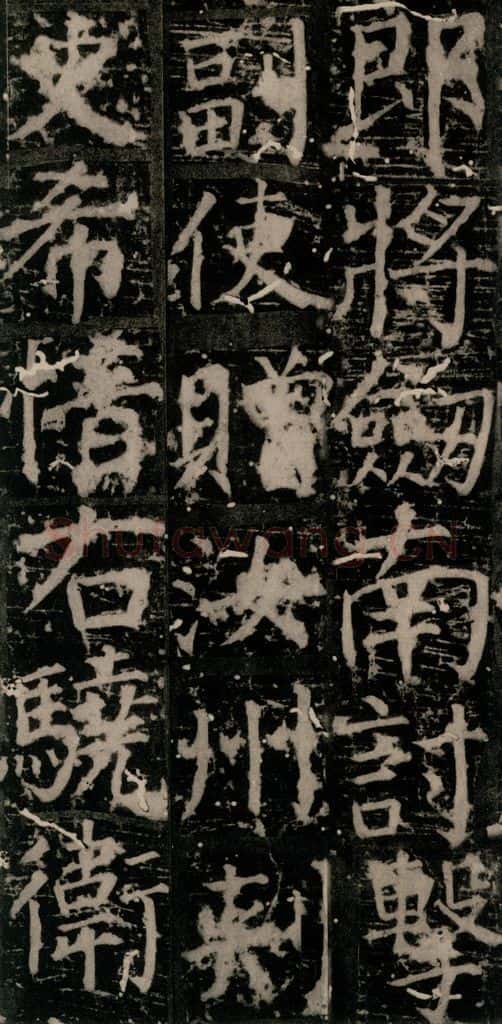 郎將劒南討擊
副使贈汝州刺
史希愔右驍衛
Shufawang.CN